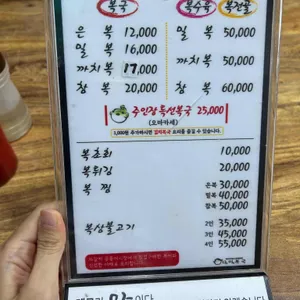 복국
복수육 복전골
은 복 12,000
밀 복 16,000
까치복 17,000
참 복 20,000
밀 복 50,000
까치복 50,000
참 복 60,000
주인장특선복국 25,000
(오마카세)
복초회 10,000
복튀김 20,000
복 찜 은복 30,000
밀복 40,000
참복 50,000
복삼불고기 2인 35,000
3인 45,000
4인 55,000